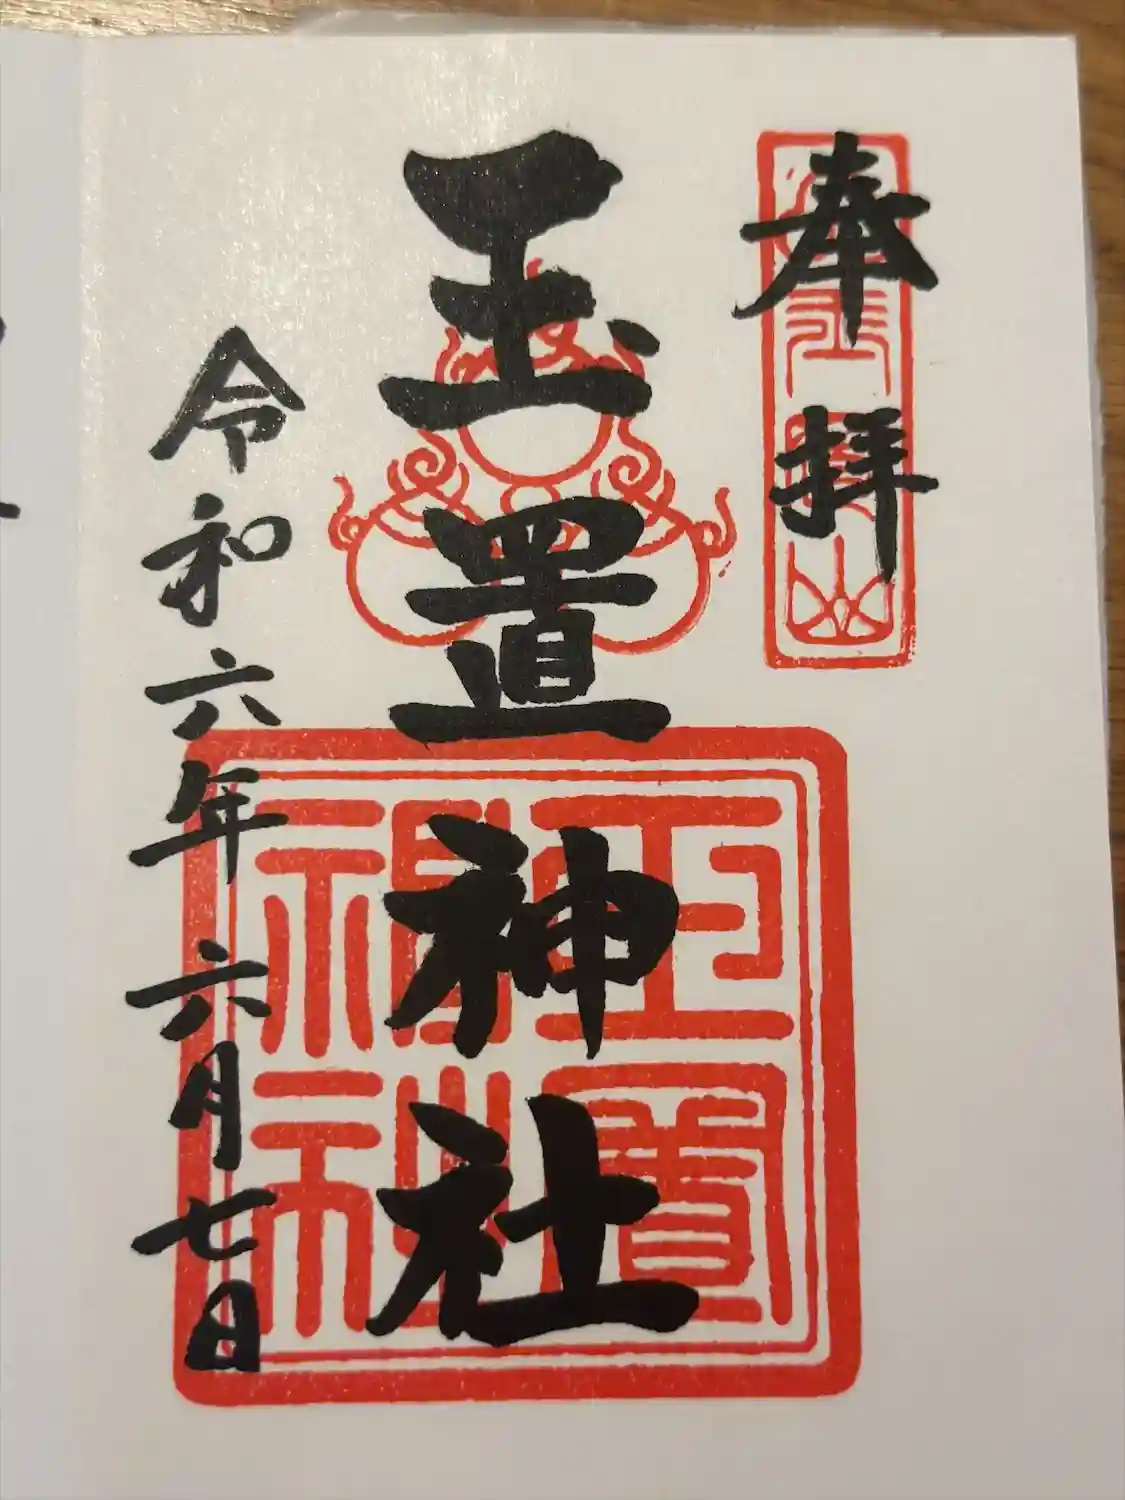 奉拝
玉置神社
令和六年六月七日
玉置神社